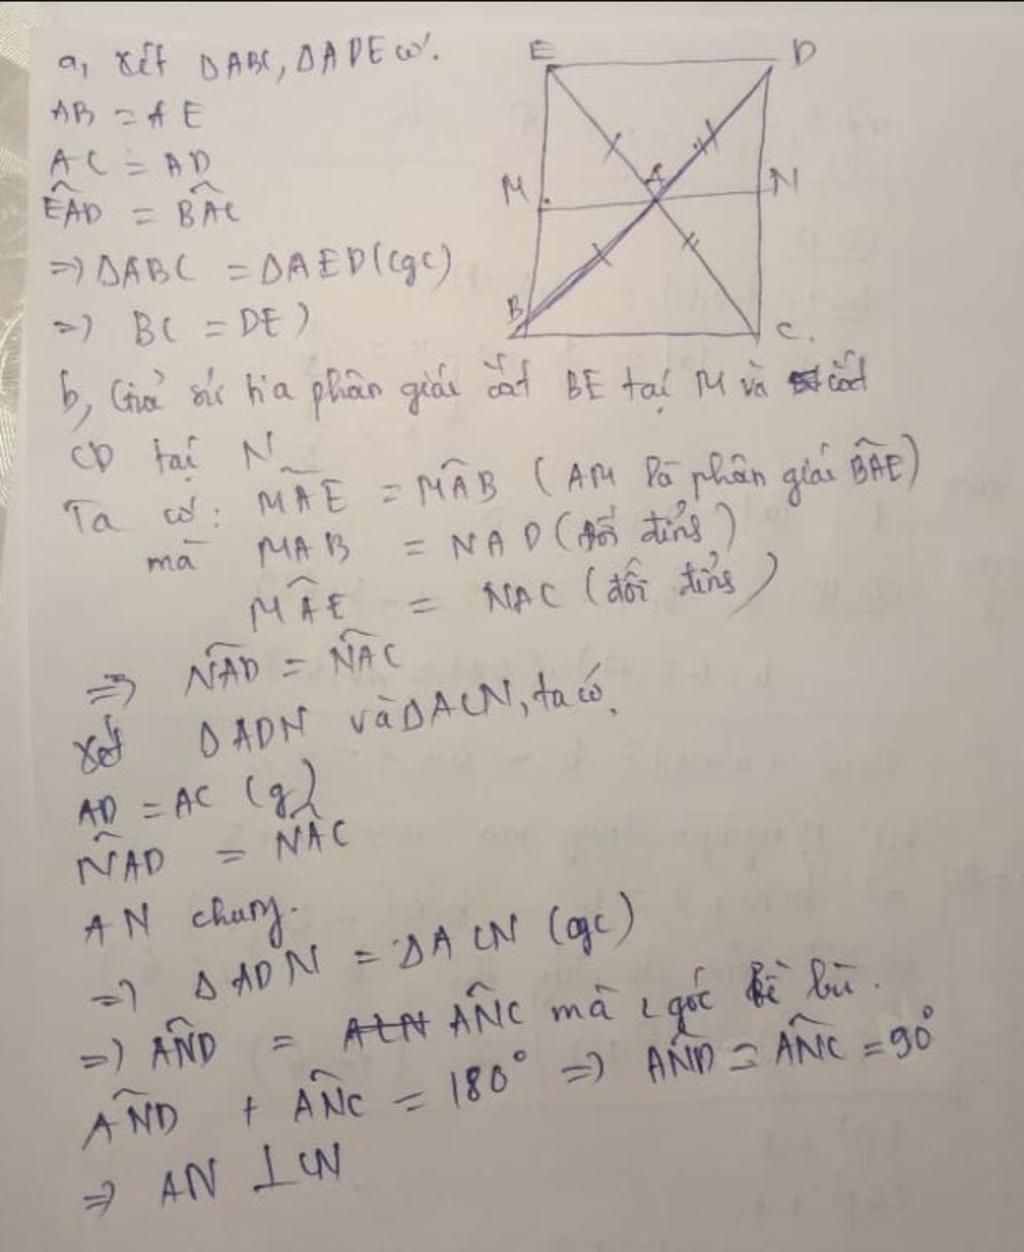 a, Xét ΔABC, ΔADE có.
AB = AE
AC = AD
ÊAD = BÂC
=> ΔABC = ΔAED (cgc)
=> BC = DE)
E
D
M
A
N
B
C.
b, Giả sử tia phân giác cắt BE tại M và cắt
CD tại N
Ta có: MÂE = MÂB (AM là phân giác BÂE)
mà MAB = NAD (đối đỉnh)
MÂE = NAC (đối đỉnh)
=> NÂD = NÂC
Xét ΔADN và ΔACN, ta có,
AD = AC (g)
NÂD = NÂC
AN chung.
=> ΔADN = ΔACN (cgc)
=> AN̂D = AN̂C mà 2 góc kề bù.
AN̂D + AN̂C = 180° => AN̂D = AN̂C = 90°
=> AN ⊥ CN